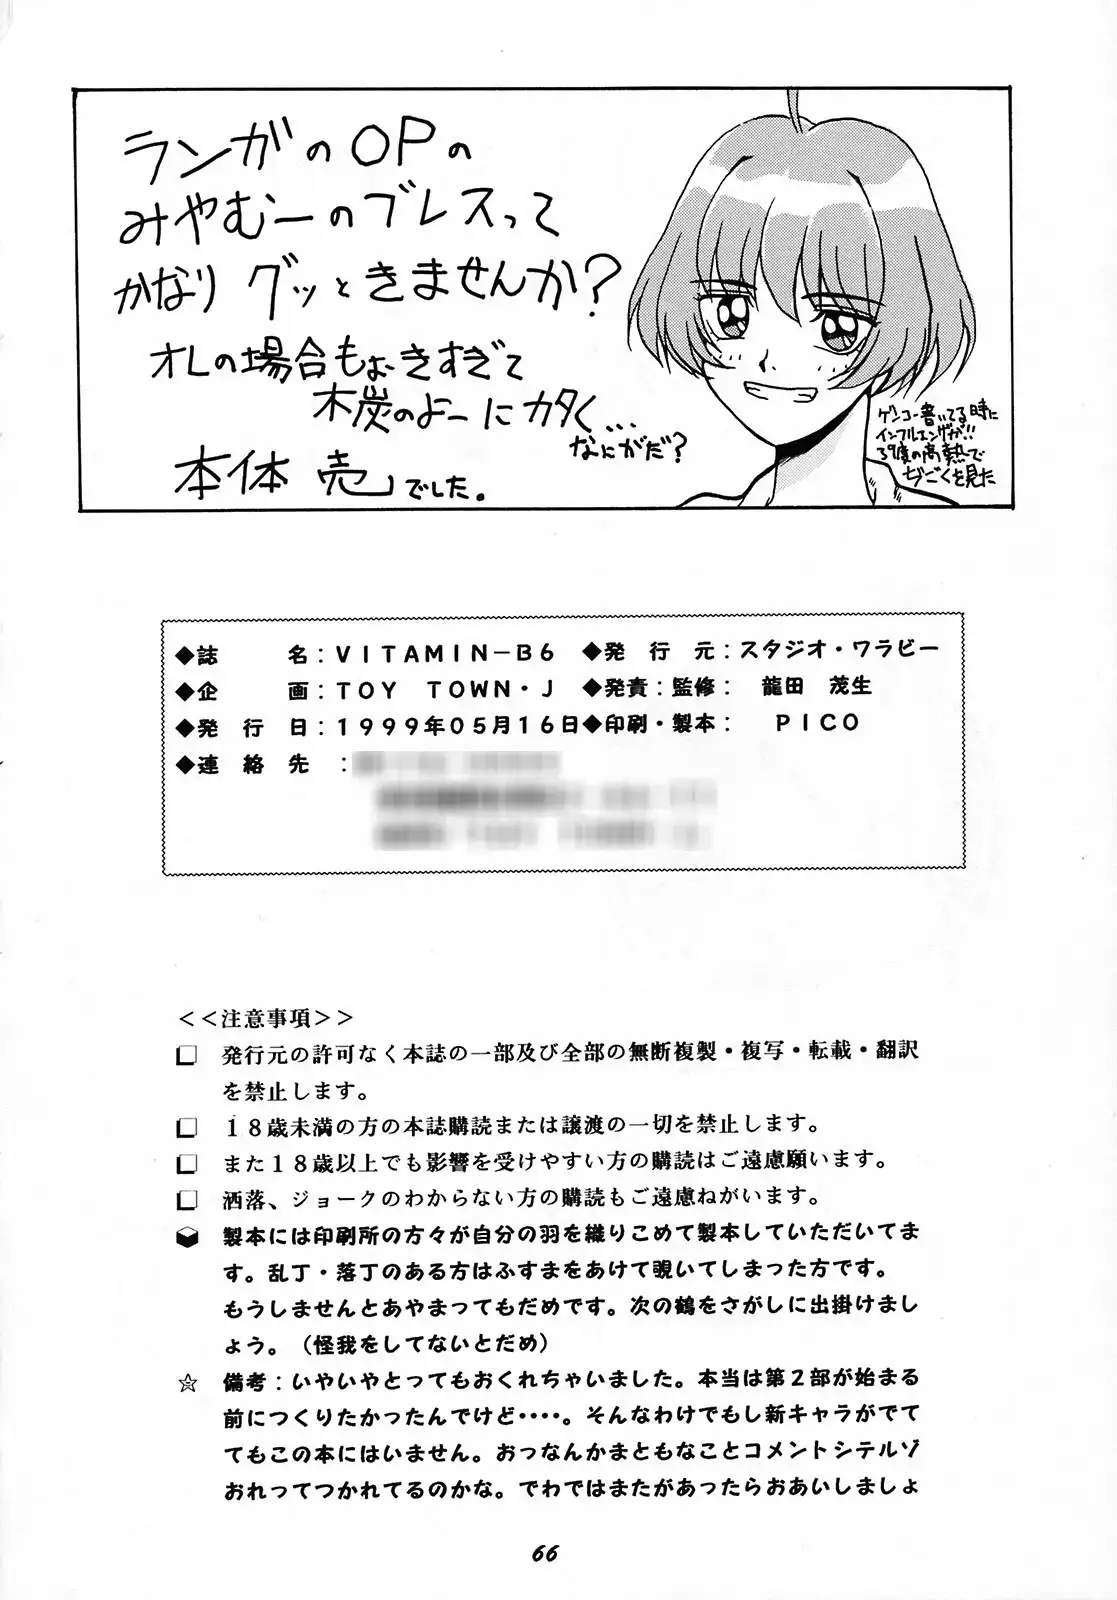 ランガのOPの
みやむーのブレスって
かなり グッときませんか?
オレの場合もぉきすぎて
木炭のよーにカタく...
なにがだ?
本体 売でした。
ゲンコー書いてる時に
インフルエンザが!!
39度の高熱で
ぢごくを見た
◆誌　　　名：ＶＩＴＡＭＩＮ－Ｂ６ ◆発　行　元：スタジオ・ワラビー
◆企　　　画：ＴＯＹ　ＴＯＷＮ・Ｊ ◆発責：監修：　龍田　茂生
◆発　行　日：１９９９年０５月１６日◆印刷・製本：　ＰＩＣＯ
◆連　絡　先　：
＜＜注意事項＞＞
❏　発行元の許可なく本誌の一部及び全部の無断複製・複写・転載・翻訳
を禁止します。
❏　１８歳未満の方の本誌購読または譲渡の一切を禁止します。
❏　また１８歳以上でも影響を受けやすい方の購読はご遠慮願います。
❏　洒落、ジョークのわからない方の購読もご遠慮ねがいます。
製本には印刷所の方々が自分の羽を織りこめて製本していただいてま
す。乱丁・落丁のある方はふすまをあけて覗いてしまった方です。
もうしませんとあやまってもだめです。次の鶴をさがしに出掛けまし
ょう。（怪我をしてないとだめ）
☆　備考：いやいやとってもおくれちゃいました。本当は第２部が始まる
前につくりたかったんでけど‥‥。そんなわけでもし新キャラがでて
てもこの本にはいません。おっなんかまともなことコメントシテルゾ
おれってつかれてるのかな。でわではまたがあったらおあいしましょ
66